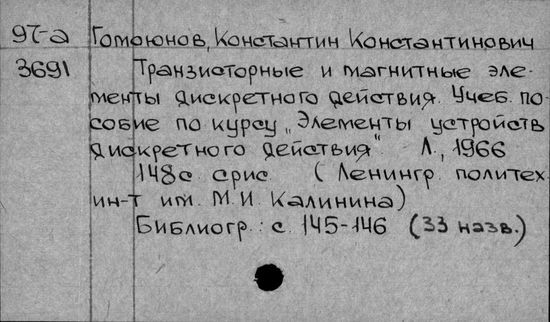 97-а Гомоюнов, Константин Константинович
3691 Транзисторные и магнитные эле-
менты дискретного действия. Учеб. по-
собие по курсу „Элементы устройств
дискретного действия" Л., 1966
148с. с рис. (Ленингр. политех.
ин-т им. М.И. Калинина)
Библиогр.: с. 145-146 (33 назв.)